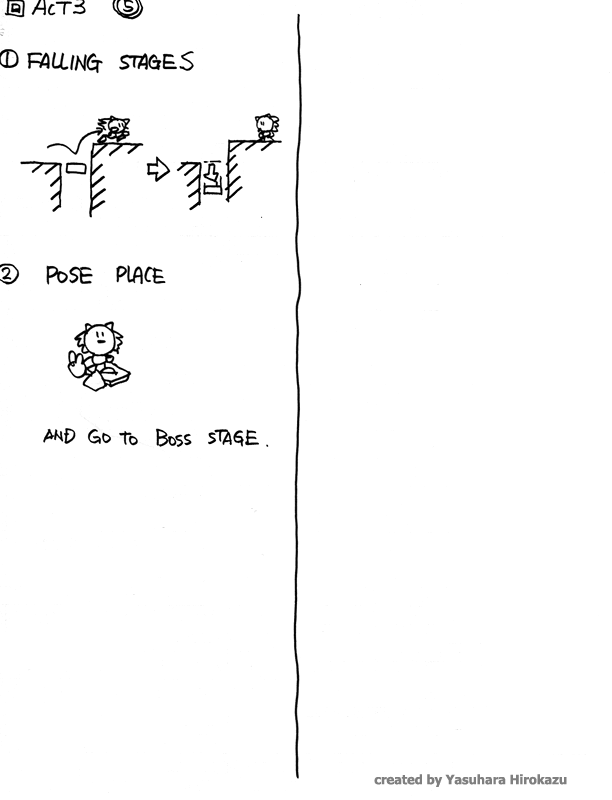 ACT3 ⑤
① FALLING STAGES
② POSE PLACE
AND GO TO BOSS STAGE.
created by Yasuhara Hirokazu